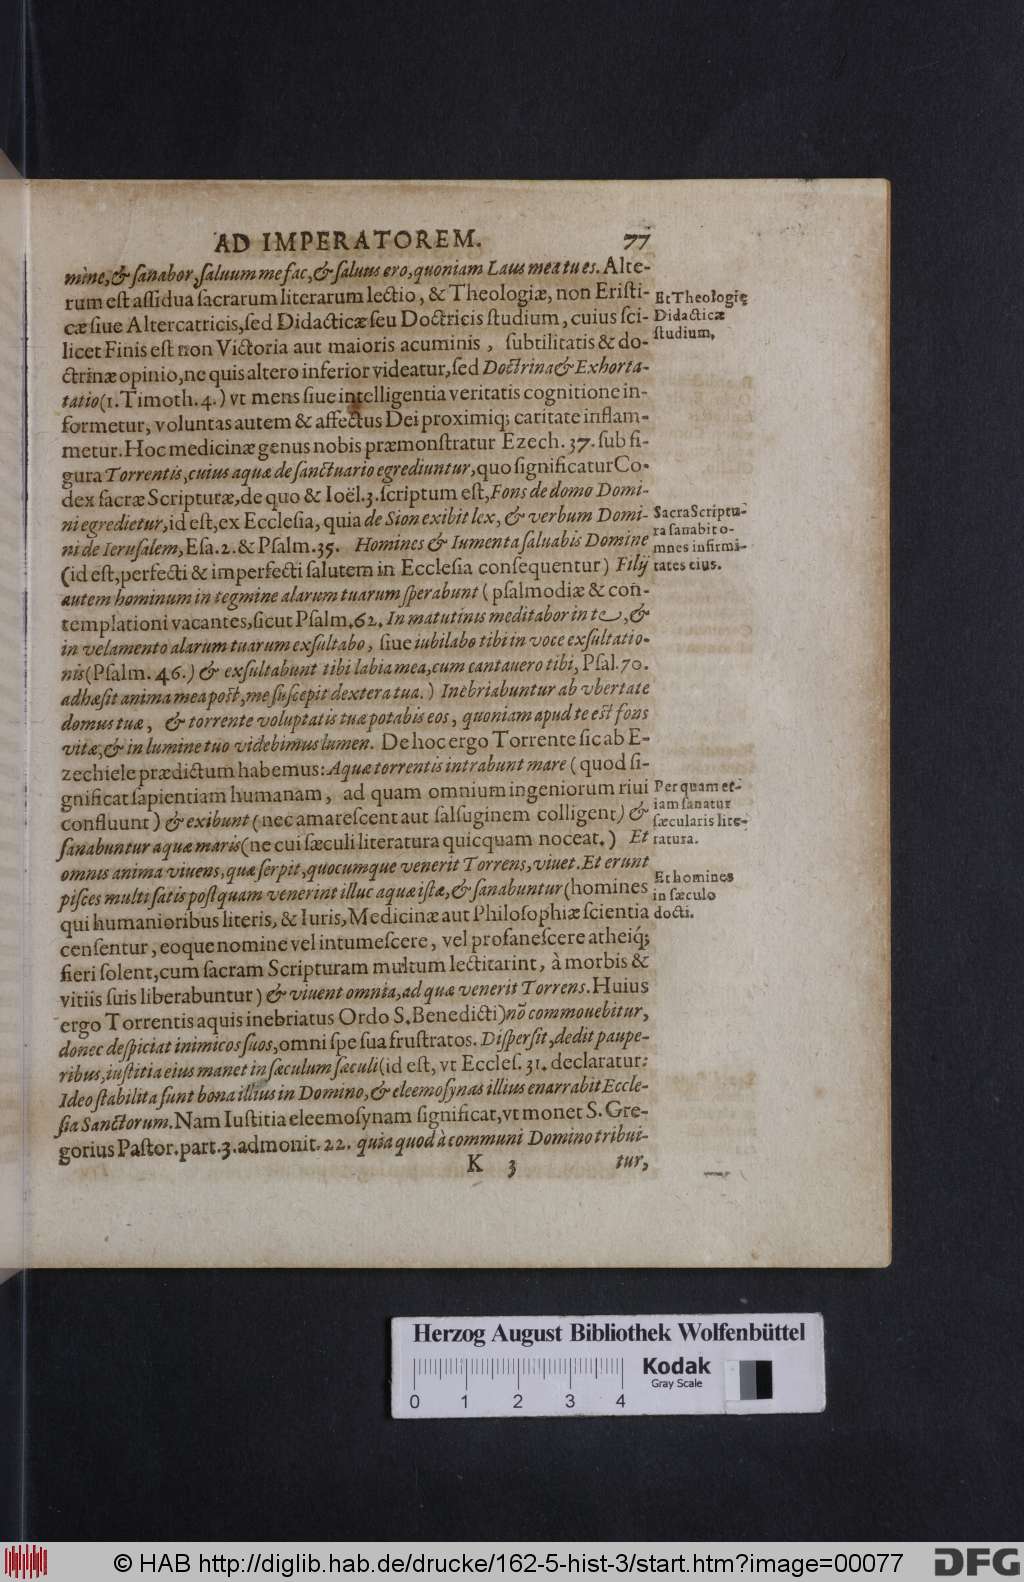 AD IMPERATOREM. 77
mine, & ſanabor, ſaluum me fac, & ſaluus ero, quoniam Laus mea tu es. Alte-
rum eſt aſſidua ſacrarum literarum lectio, & Theologiæ, non Eriſti-
cæ ſiue Altercatricis, ſed Didacticæ ſeu Doctricis ſtudium, cuius ſci-
licet Finis eſt non Victoria aut maioris acuminis, ſubtilitatis & do-
ctrinæ opinio, ne quis altero inferior videatur, ſed Doctrina & Exhorta-
tatio (1. Timoth. 4.) vt mens ſiue intelligentia veritatis cognitione in-
formetur, voluntas autem & affectus Dei proximiq; caritate inflam-
metur. Hoc medicinæ genus nobis præmonſtratur Ezech. 37. ſub fi-
gura Torrentis, cuius aquæ de ſanctuario egrediuntur, quo ſignificatur Co-
dex ſacræ Scripturæ, de quo & Ioël. 3. ſcriptum eſt, Fons de domo Domi-
ni egredietur, id eſt, ex Eccleſia, quia de Sion exibit lex, & verbum Domi-
ni de Ieruſalem, Eſa. 2. & Pſalm. 35. Homines & Iumenta ſaluabis Domine
(id eſt, perfecti & imperfecti ſalutem in Eccleſia conſequentur) Filij
autem hominum in tegmine alarum tuarum ſperabunt (pſalmodiæ & con-
templationi vacantes, ſicut Pſalm. 62. In matutinis meditabor in te, &
in velamento alarum tuarum exſultabo, ſiue iubilabo tibi in voce exſultatio-
nis (Pſalm. 46.) & exſultabunt tibi labia mea, cum cantauero tibi, Pſal. 70.
adhæſit anima mea poſt, me ſuſcepit dextera tua.) Inebriabuntur ab vbertate
domus tuæ, & torrente voluptatis tuæ potabis eos, quoniam apud te eſt fons
vitæ, & in lumine tuo videbimus lumen. De hoc ergo Torrente ſic ab E-
zechiele prædictum habemus: Aquæ torrentis intrabunt mare (quod ſi-
gnificat ſapientiam humanam, ad quam omnium ingeniorum riui
confluunt) & exibunt (nec amareſcent aut ſalſuginem colligent) &
ſanabuntur aquæ maris (ne cui ſæculi literatura quicquam noceat.) Et
omnis anima viuens, quæ ſerpit, quocumque venerit Torrens, viuet. Et erunt
piſces multi ſatis poſtquam venerint illuc aquæ iſtæ, & ſanabuntur (homines
qui humanioribus literis, & Iuris, Medicinæ aut Philoſophiæ ſcientia
cenſentur, eoque nomine vel intumeſcere, vel profaneſcere atheiq́;
fieri ſolent, cum ſacram Scripturam multum lectitarint, à morbis &
vitiis ſuis liberabuntur) & viuent omnia, ad quæ venerit Torrens. Huius
ergo Torrentis aquis inebriatus Ordo S. Benedicti) nõ commouebitur,
donec deſpiciat inimicos ſuos, omni ſpe ſua fruſtratos. Diſperſit, dedit paupe-
ribus, iuſtitia eius manet in ſæculum ſæculi (id eſt, vt Eccleſ. 31. declaratur:
Ideo ſtabilita ſunt bona illius in Domino, & eleemoſynas illius enarrabit Eccle-
ſia Sanctorum. Nam Iuſtitia eleemoſynam ſignificat, vt monet S. Gre-
gorius Paſtor. part. 3. admonit. 22. quia quod à communi Domino tribui-
K 3 tur,
Et Theologię
Didacticæ
ſtudium,
Sacra Scriptu-
ra ſanabit o-
mnes infirmi-
tates eius.
Per quam et-
iam ſanatur
ſæcularis lite-
ratura.
Et homines
in ſæculo
docti.
Herzog August Bibliothek Wolfenbüttel
0 1 2 3 4
Kodak
Gray Scale
© HAB http://diglib.hab.de/drucke/162-5-hist-3/start.htm?image=00077
DFG